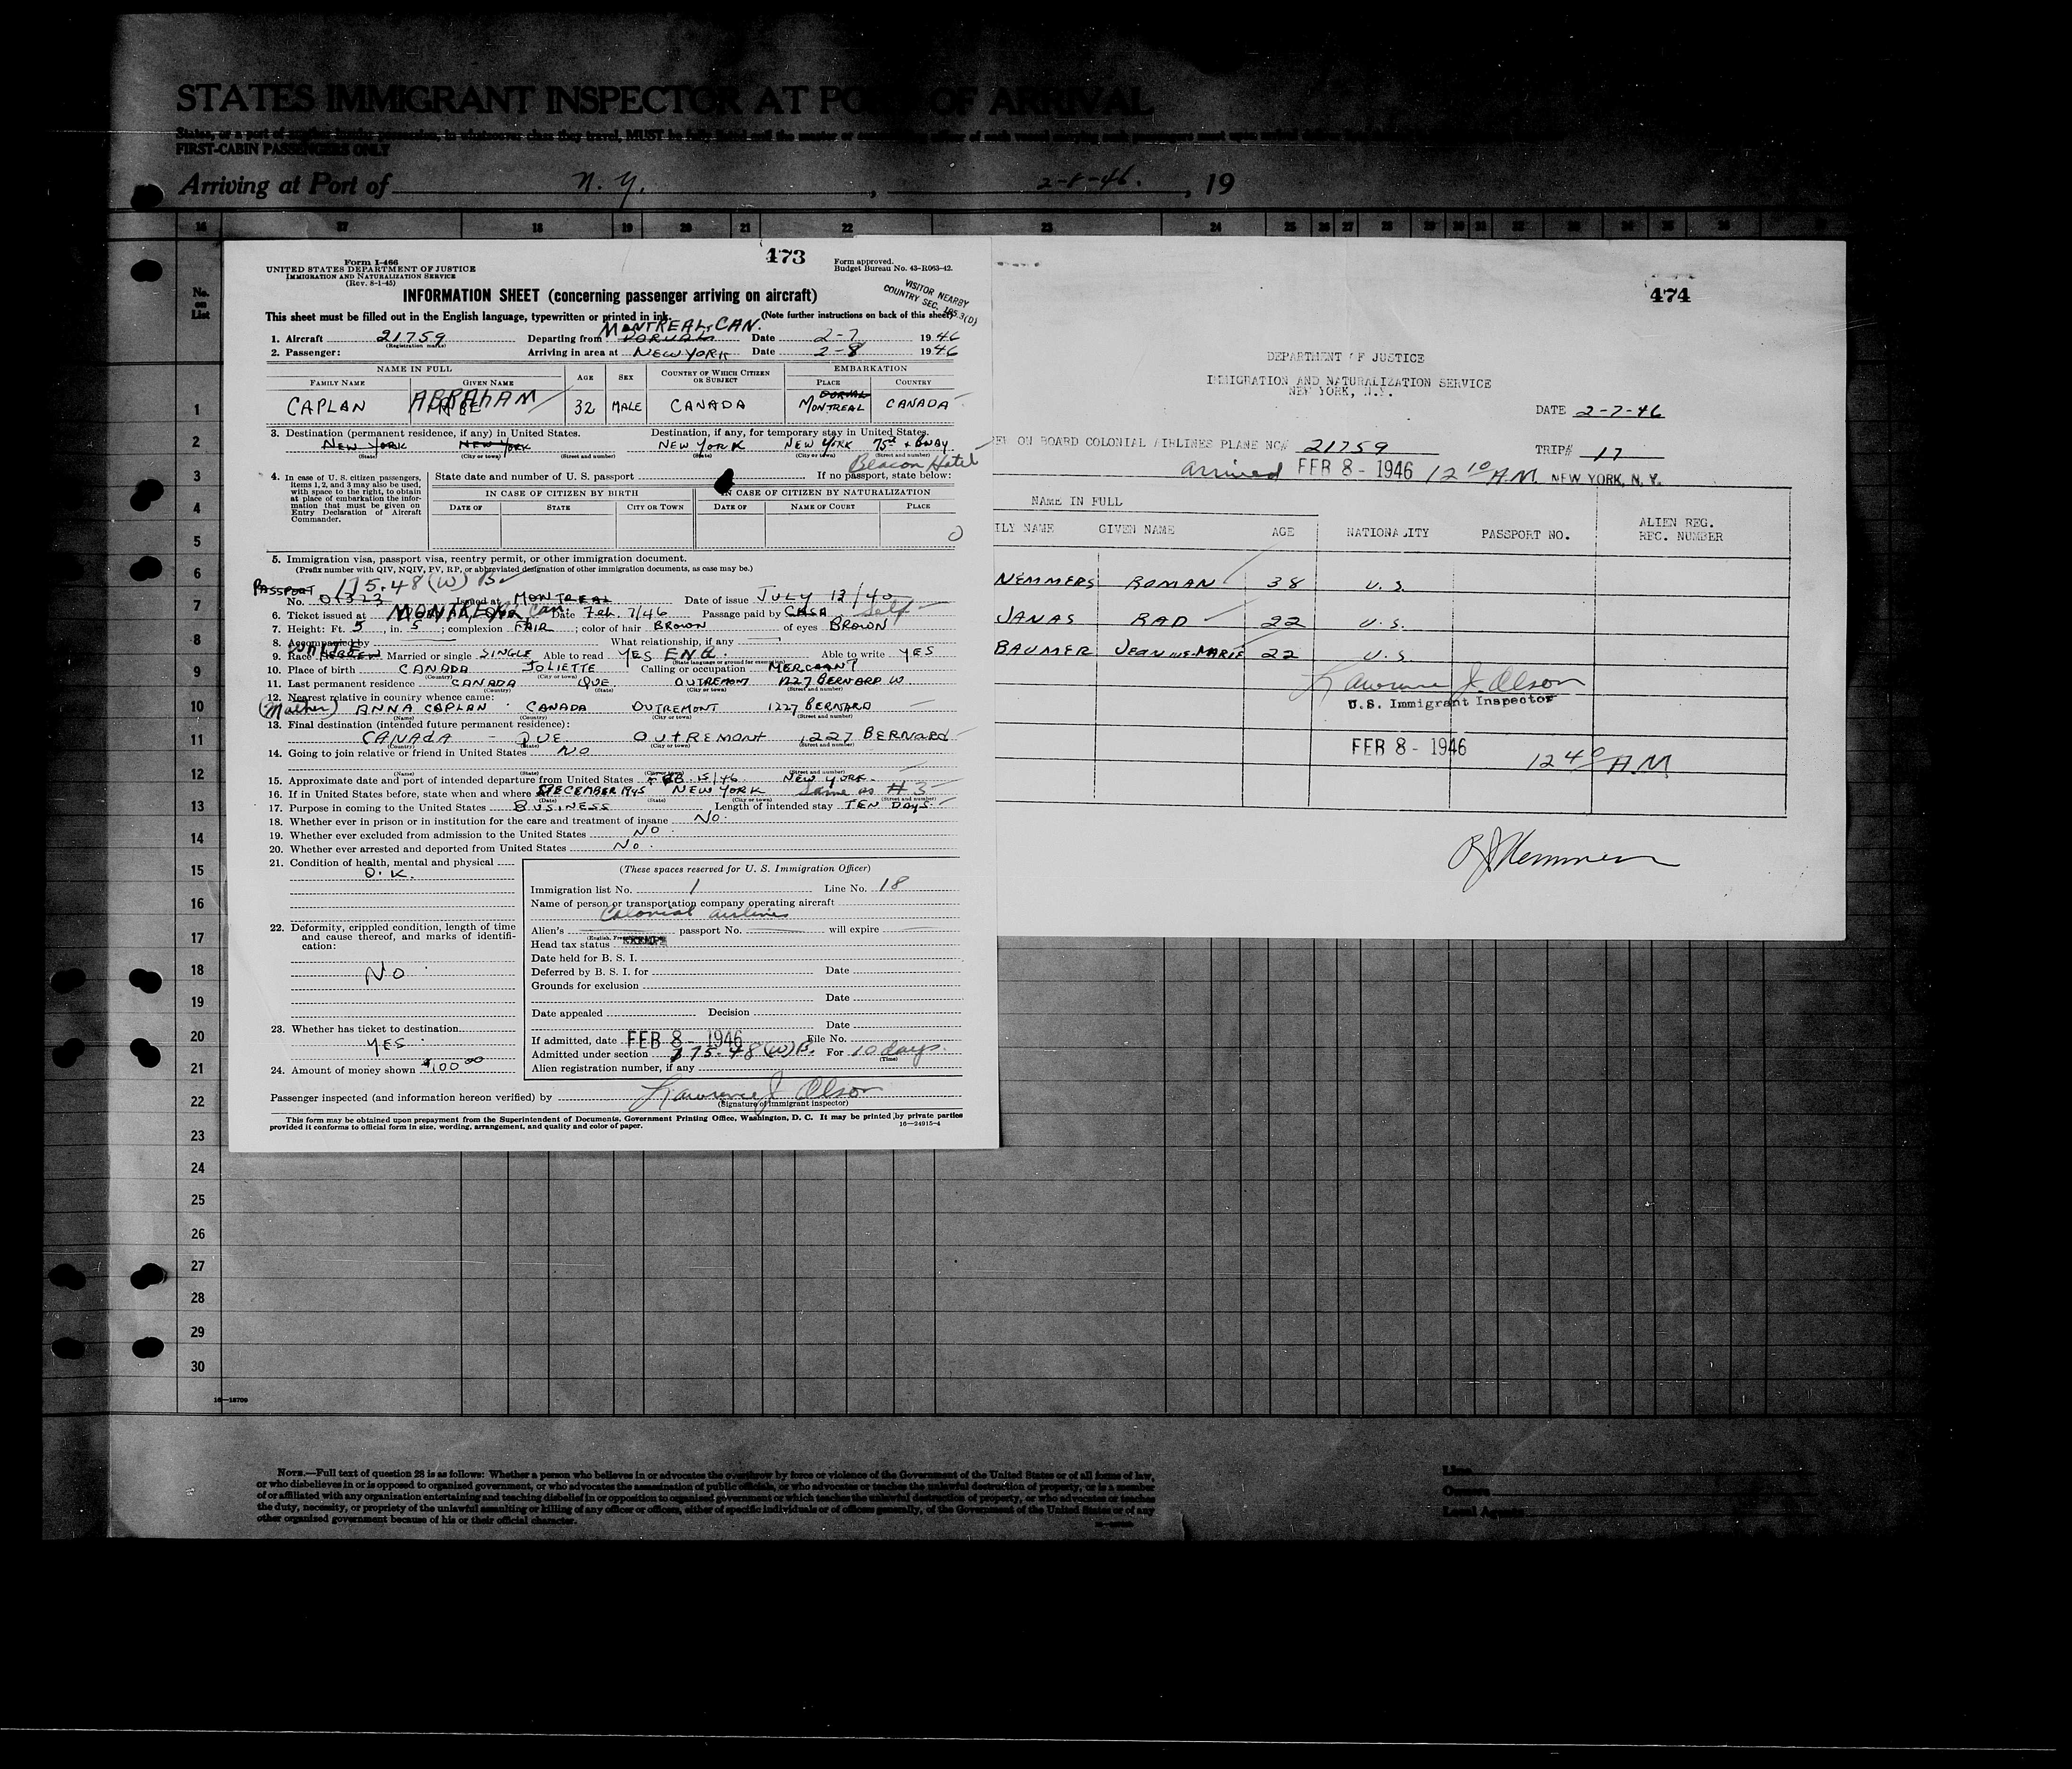 STATES IMMIGRANT INSPECTOR AT PORT OF ARRIVAL
FIRST-CABIN PASSENGERS ONLY
Arriving at Port of N. Y. , 2-8-46. , 19
16 17 18 19 20 21 22 23 24 25 26 27 28 29 30 31
No. on List
473
Form I-466
UNITED STATES DEPARTMENT OF JUSTICE
IMMIGRATION AND NATURALIZATION SERVICE
(Rev. 8-1-45)
Form approved.
Budget Bureau No. 43-R063-42.
VISITOR NEARBY
COUNTRY SEC. 165.3(D)
INFORMATION SHEET (concerning passenger arriving on aircraft)
This sheet must be filled out in the English language, typewritten or printed in ink.
(Note further instructions on back of this sheet)
MONTREAL, CAN.
1. Aircraft 21759 Departing from DORVAL Date 2-7 1946
(Registration marks)
2. Passenger: Arriving in area at NEW YORK Date 2-8 1946
NAME IN FULL AGE SEX COUNTRY OF WHICH CITIZEN OR SUBJECT EMBARKATION
FAMILY NAME GIVEN NAME PLACE COUNTRY
ABRAHAM DORVAL
CAPLAN ABE 32 MALE CANADA MONTREAL CANADA
3. Destination (permanent residence, if any) in United States. Destination, if any, for temporary stay in United States.
NEW YORK NEW YORK NEW YORK NEW YORK 75st + BWAY
(State) (City or town) (Street and number) (State) (City or town) (Street and number)
Beacon Hotel
4. In case of U. S. citizen passengers, items 1, 2, and 3 may also be used, with space to the right, to obtain at place of embarkation the information that must be given on Entry Declaration of Aircraft Commander.
State date and number of U. S. passport If no passport, state below:
IN CASE OF CITIZEN BY BIRTH IN CASE OF CITIZEN BY NATURALIZATION
DATE OF STATE CITY OR TOWN DATE OF NAME OF COURT PLACE
5. Immigration visa, passport visa, reentry permit, or other immigration document.
(Prefix number with QIV, NQIV, PV, RP, or abbreviated designation of other immigration documents, as case may be.)
175.48 (W) B
PASSPORT
No. 01323 Issued at MONTREAL Date of issue JULY 12/40
6. Ticket issued at MONTREAL Can. Date Feb. 7/46 Passage paid by CASH Self
7. Height: Ft. 5, in. 5; complexion FAIR; color of hair BROWN of eyes BROWN
8. Accompanied by What relationship, if any
WHITE
9. Race HEBREW Married or single SINGLE Able to read YES ENG. Able to write YES
(State language or ground for exemption)
10. Place of birth CANADA JOLIETTE Calling or occupation MERCHANT
(Country) (City or town)
11. Last permanent residence CANADA QUE. OUTREMONT 1227 BERNARD W
(Country) (State) (City or town) (Street and number)
12. Nearest relative in country whence came:
(Mother) ANNA CAPLAN CANADA OUTREMONT 1227 BERNARD
(Name) (Country) (City or town) (Street and number)
13. Final destination (intended future permanent residence):
CANADA - QUE OUTREMONT 1227 BERNARD
(Country) (State) (City or town) (Street and number)
14. Going to join relative or friend in United States NO
(Name) (State) (City or town) (Street and number)
15. Approximate date and port of intended departure from United States FEB. 15/46 NEW YORK
16. If in United States before, state when and where DECEMBER 1945 NEW YORK Same as # 3
(Date) (State) (City or town) (Street and number)
17. Purpose in coming to the United States BUSINESS Length of intended stay TEN DAYS
18. Whether ever in prison or in institution for the care and treatment of insane NO.
19. Whether ever excluded from admission to the United States NO.
20. Whether ever arrested and deported from United States NO.
21. Condition of health, mental and physical
O.K.
22. Deformity, crippled condition, length of time and cause thereof, and marks of identification:
NO
23. Whether has ticket to destination
YES
24. Amount of money shown $100 00
(These spaces reserved for U. S. Immigration Officer)
Immigration list No. 1 Line No. 18
Name of person or transportation company operating aircraft
Colonial airlines
Alien's passport No. will expire
Head tax status
Date held for B. S. I.
Deferred by B. S. I. for Date
Grounds for exclusion
Date
Date appealed Decision
Date
If admitted, date FEB 8 - 1946 File No.
Admitted under section 175.48 (W) B. For 10 days.
(Time)
Alien registration number, if any
Passenger inspected (and information hereon verified) by Lawrence J. Olson
(Signature of immigrant inspector)
This form may be obtained upon prepayment from the Superintendent of Documents, Government Printing Office, Washington, D. C. It may be printed by private parties
provided it conforms to official form in size, wording, arrangement, and quality and color of paper. 16—24915-4
474
DEPARTMENT OF JUSTICE
IMMIGRATION AND NATURALIZATION SERVICE
NEW YORK, N.Y.
DATE 2-7-46
ON BOARD COLONIAL AIRLINES PLANE NO# 21759 TRIP# 17
arrived FEB 8 - 1946 12 10 A.M. NEW YORK, N. Y.
NAME IN FULL
ILY NAME GIVEN NAME AGE NATIONALITY PASSPORT NO. ALIEN REG. REC. NUMBER
NEMMERS ROMAN 38 U.S.
JANAS RAD 22 U.S.
BAUMER JEANNE-MARIE 22 U.S.
Lawrence J. Olson
U.S. Immigrant Inspector
FEB 8 - 1946 12 40 A.M
RJ Nemmers
1
2
3
4
5
6
7
8
9
10
11
12
13
14
15
16
17
18
19
20
21
22
23
24
25
26
27
28
29
30
16—18709
NOTE.—Full text of question 28 is as follows: Whether a person who believes in or advocates the overthrow by force or violence of the Government of the United States or of all forms of law,
or who disbelieves in or is opposed to organized government, or who advocates the assassination of public officials, or who advocates or teaches the unlawful destruction of property, or is a member
of or affiliated with any organization entertaining and teaching disbelief in or opposition to organized government or which teaches the unlawful destruction of property, or who advocates or teaches
the duty, necessity, or propriety of the unlawful assaulting or killing of any officer or officers, either of specific individuals or of officers generally, of the Government of the United States or of any
other organized government because of his or their official character.
Line
Owners
Local Agents